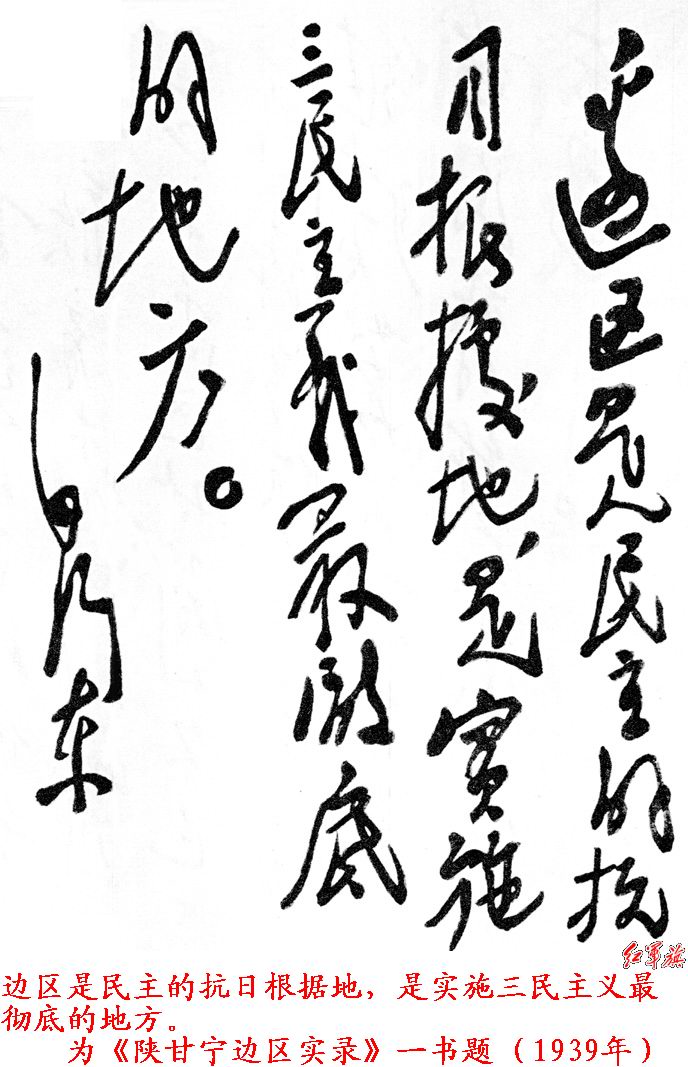 邊區是民主的抗
日根據地，是實施
三民主義最徹底
的地方。
毛澤東
红军旗
边区是民主的抗日根据地，是实施三民主义最
彻底的地方。
为《陕甘宁边区实录》一书题（1939年）